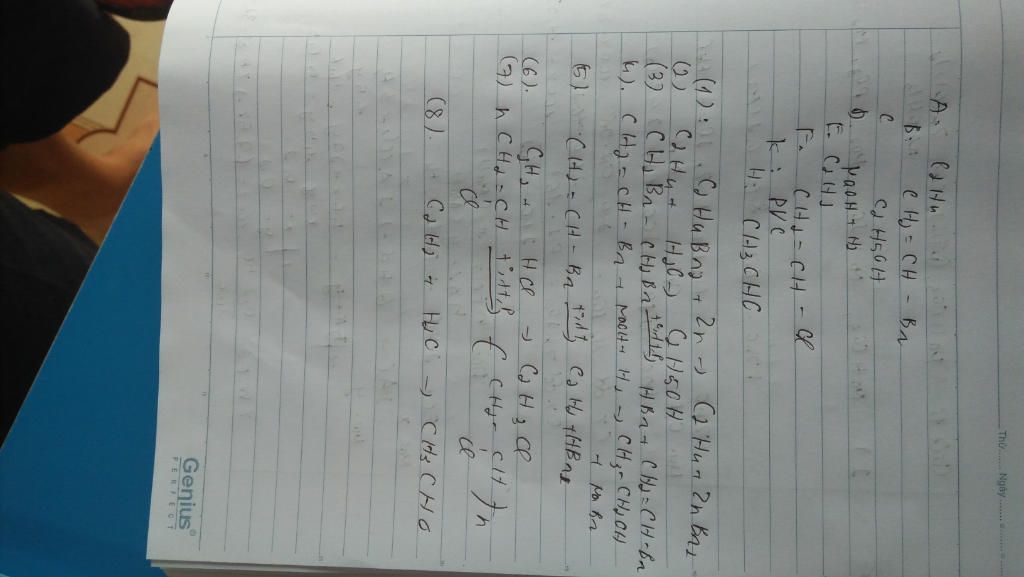 Thứ ..... Ngày
A: C2H4
B: CH2=CH-Br
C C2H5OH
D NaOH + H2
E C2H2
F: CH2=CH-Cl
K: PVC
H: CH3CHO
(1): C2H4Br2 + Zn → C2H4 + ZnBr2
(2) C2H4 + H2O → C2H5OH
(3) CH2Br-CH2Br → HBr + CH2=CH-Br
4). CH2=CH-Br + NaOH + H2 → CH3-CH2OH
+ NaBr
5). CH2=CH-Br → C2H2 + HBr
(6). C2H2 + HCl → C2H3Cl
(7) nCH2=CH → (CH2-CH)n
Cl Cl
(8). C2H2 + H2O → CH3CHO
Genius®
PERFECT